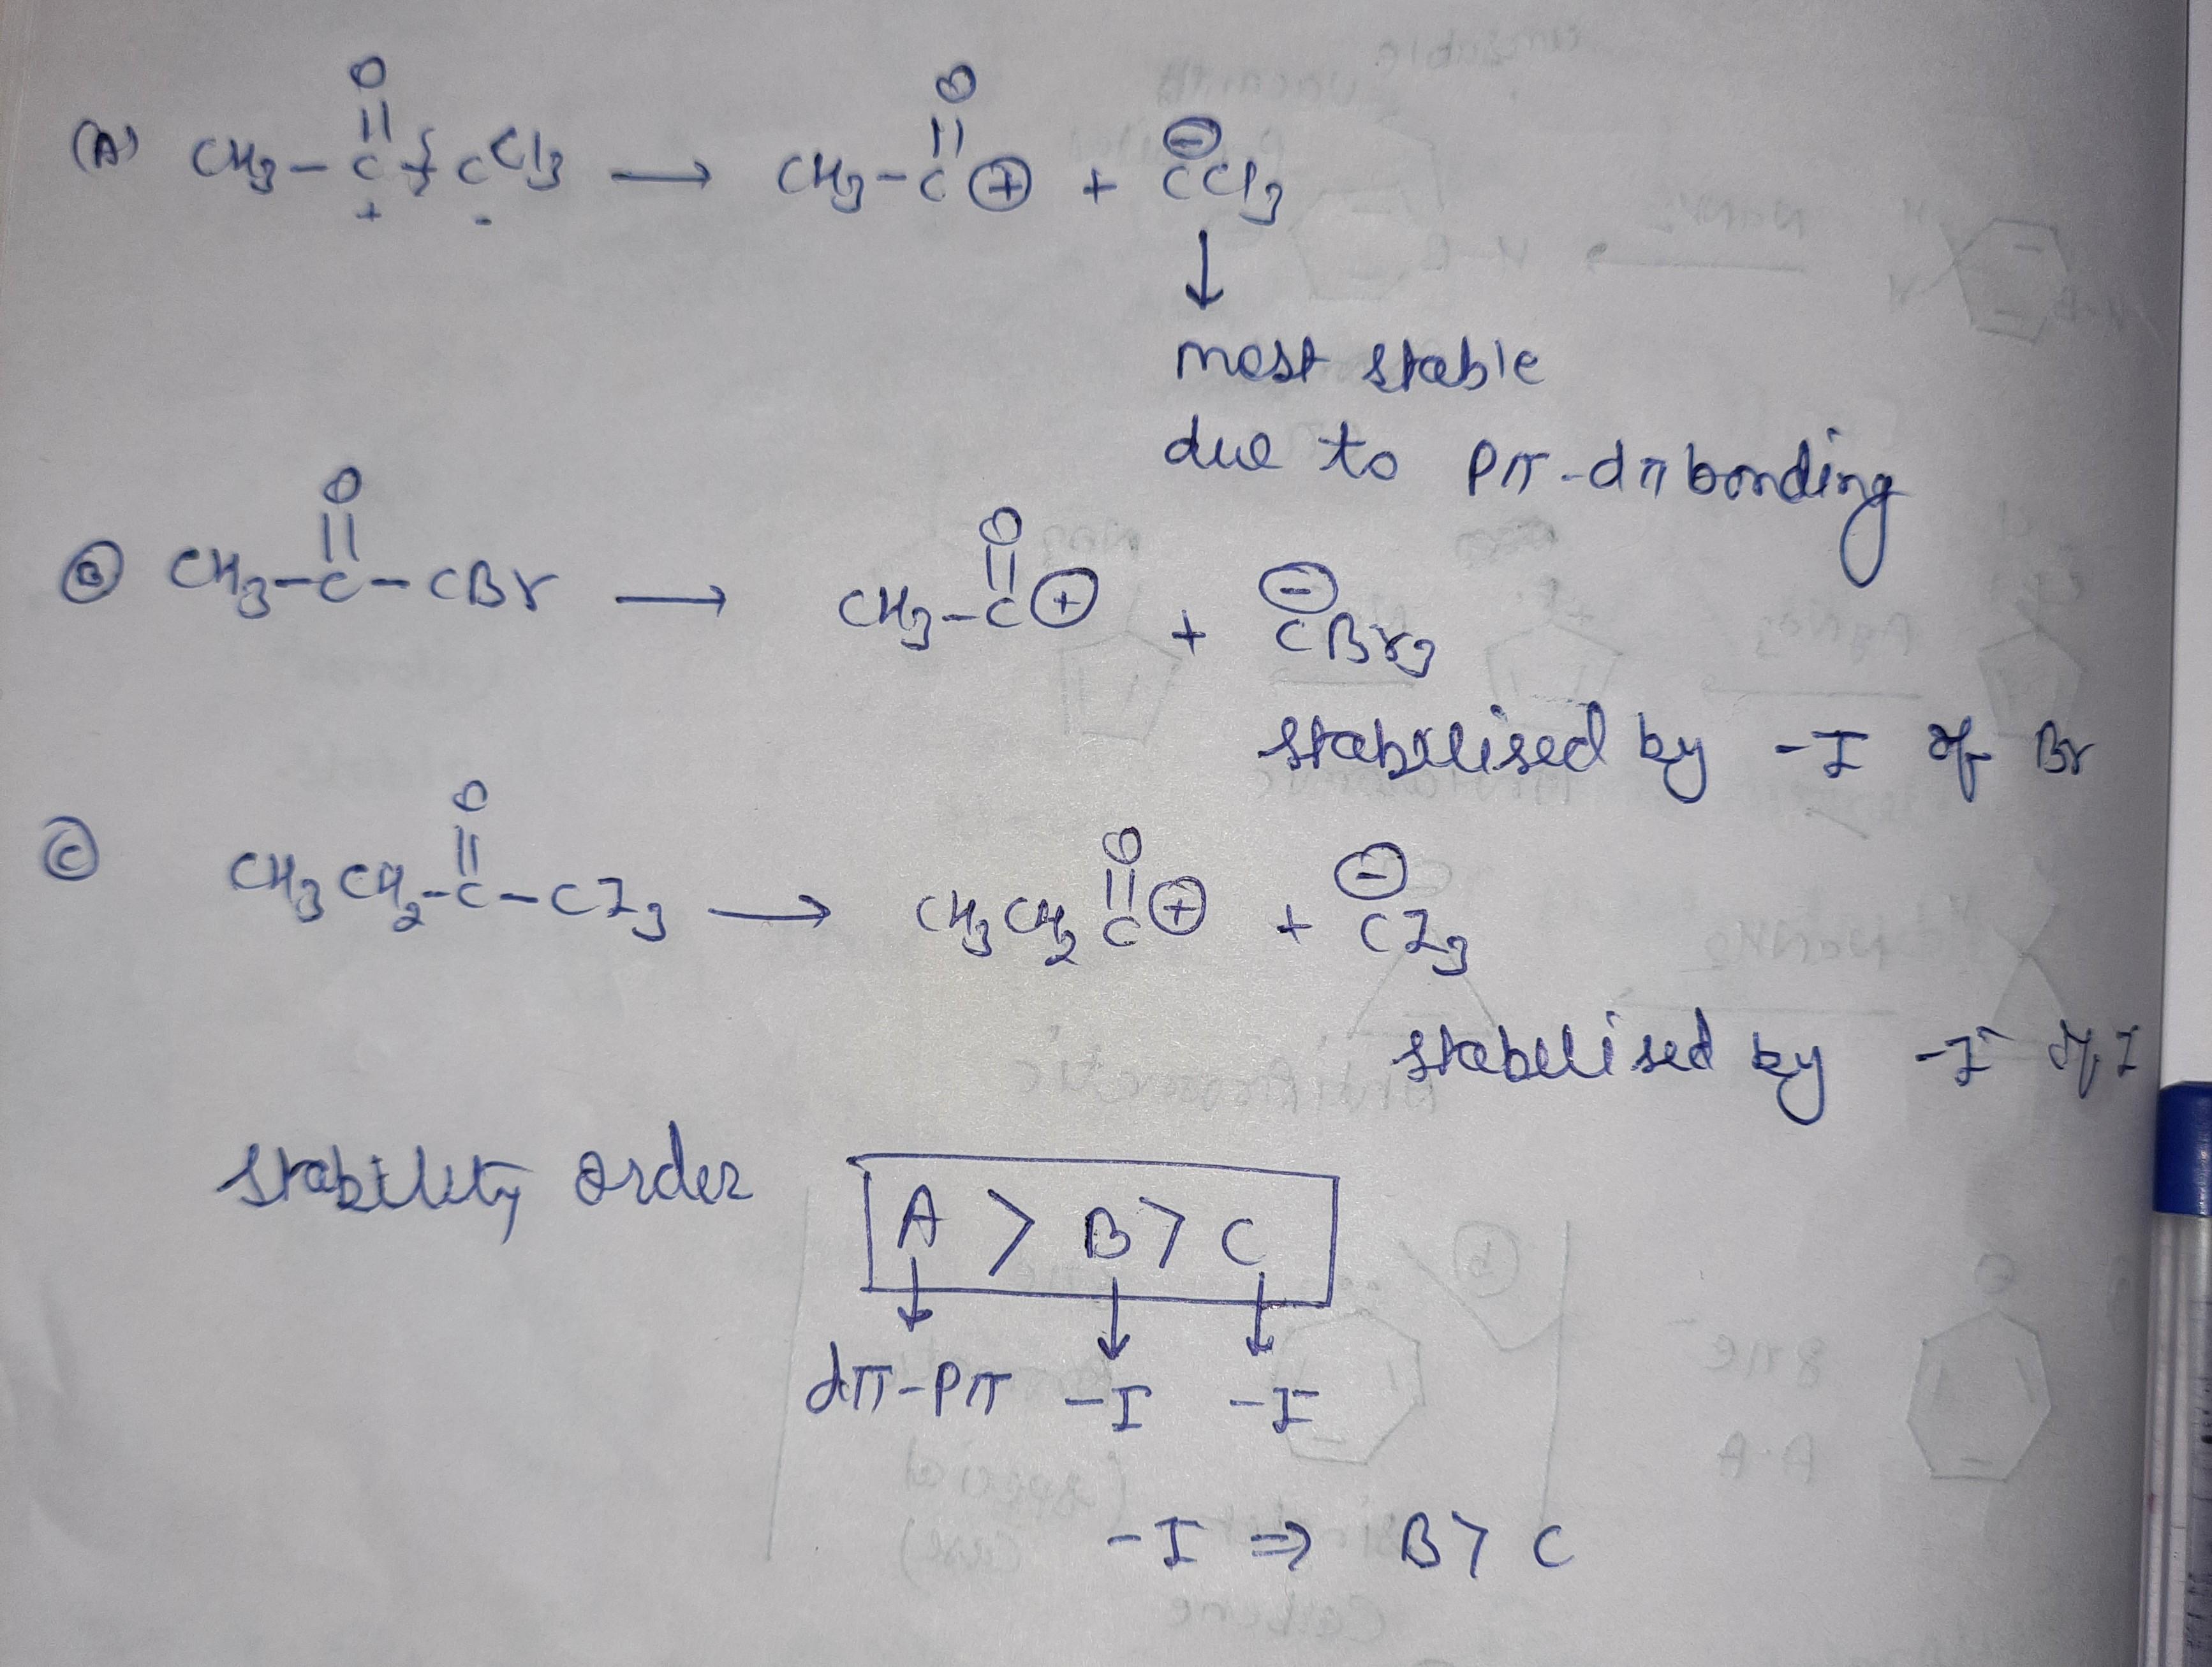 (A) CH3-C(=O)-CCl3 → CH3-C(=O)⊕ + ⊖CCl3
+ -
↓
most stable
due to pπ-dπ bonding
Ⓑ CH3-C(=O)-CBr → CH3-C(=O)⊕ + ⊖CBr3
stabilised by -I of Br
Ⓒ CH3CH2-C(=O)-CI3 → CH3CH2C(=O)⊕ + ⊖CI3
stabilised by -I of I
stability order A > B > C
↓ ↓ ↓
dπ-pπ -I -I
-I ⇒ B > C